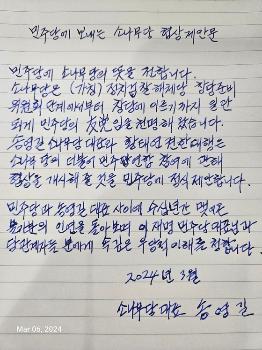 민주당에 보내는 소나무당 협상제안문
민주당에 소나무당의 뜻을 전합니다.
소나무당은 (가칭) 정치검찰해체당 창당준비
위원회 단계에서부터 창당에 이르기까지 일관
되게 민주당의 友党임을 천명해 왔습니다.
송영길 소나무당 대표와 황태연 권한대행는
소나무당이 더불어 민주당연합 참여에 관해
협상을 개시해 줄 것을 민주당에 정식 제안합니다.
민주당과 송영길 대표 사이에 수십년간 맺어온
동지관의 인연을 돌아보며 이재명 민주당 대표님과
당관계자들 분에게 속깊은 우당의 이해를 청합니다.
2024년 3월
소나무당 대표 송영길
Mar 06, 2024